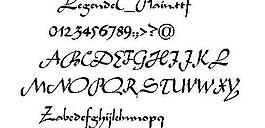 Legendel_Plain.ttf
0123456789:;>?@
ABCDEFGHIJKL
MNOPQRSTUVWXY
Zabcdefghijklmnopq